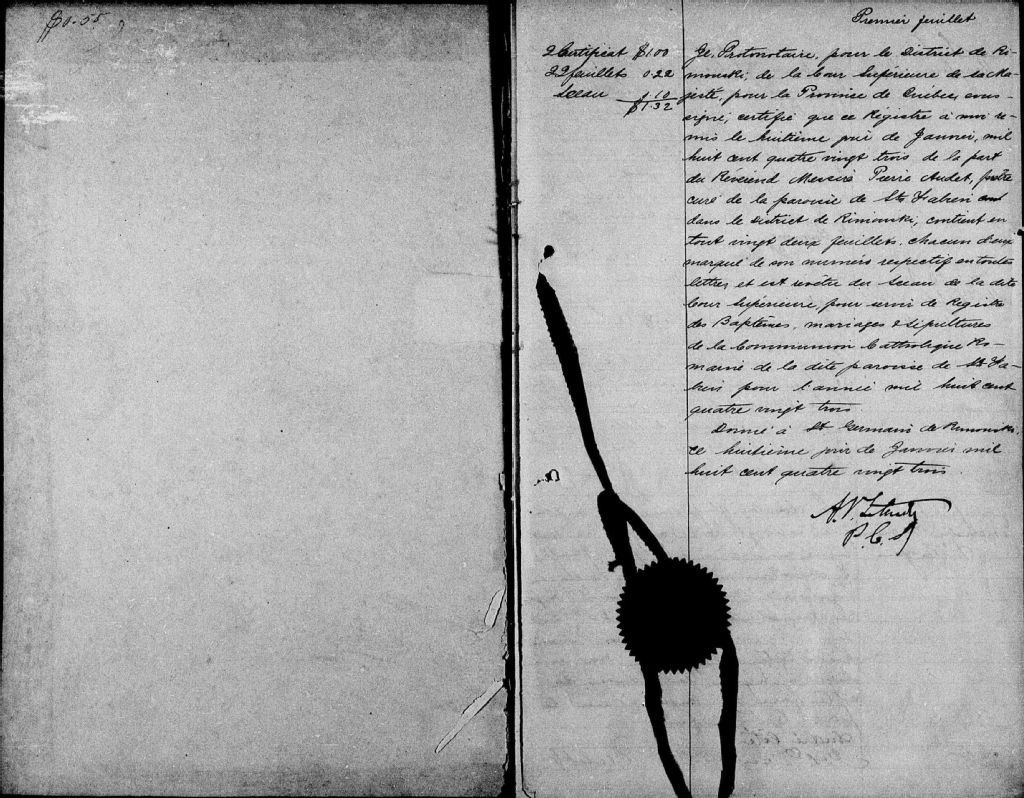 $0.55
Premier feuillet
2 Certificat $1.00
22 feuillets 0.22
Sceau .10
$1.32
Je, Protonotaire, pour le District de Ri-
mouski, de la Cour Supérieure de sa Ma-
jesté, pour la Province de Québec, sous-
signé, certifie que ce Régistre à moi re-
mis le huitième jour de Janvier, mil
huit cent quatre vingt trois de la part
du Révérend Messire Pierre Audet, prêtre
curé de la paroisse de St. Fabien
dans le District de Rimouski, contient en
tout vingt deux feuillets, chacun d'eux
marqué de son numéro respectif en toute
lettres, et est revêtu du Sceau de la dite
Cour Supérieure, pour servir de Régistre
des Baptêmes, mariages & sépultures
de la Communion Catholique Ro-
maine de la dite paroisse de St. Fa-
bien pour l'année mil huit cent
quatre vingt trois.
Donné à St Germain de Rimouski,
ce huitième jour de Janvier mil
huit cent quatre vingt trois.
P.C.S.